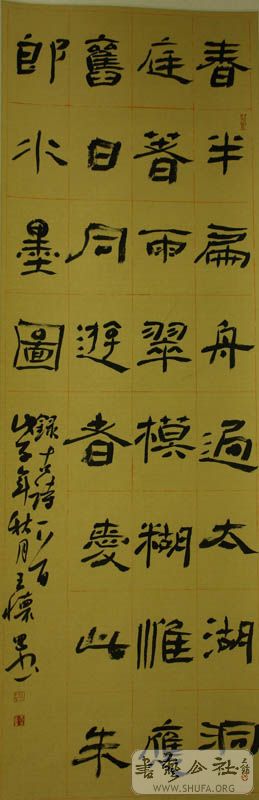 春半扁舟過太湖洞
庭著雨翠模糊惟應
舊日同遊者愛此朱
郎水墨圖
錄古詩一首
戊子年秋月王
書藝公社
WWW.SHUFA.ORG